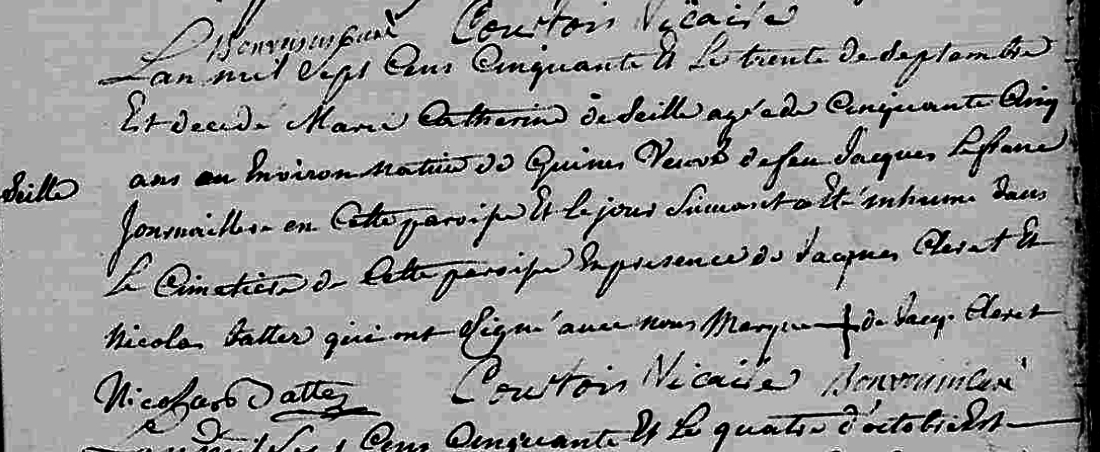 Bonvoisin curé Courtois Vicaire
L'an mil Sept Cens Cinquante Et Le trente de Septembre
Est decedé Marie Catherine deSeille agée de Cinquante Cinq
ans ou Environ native de Guines Veuve de feu Jacques Lefranc
Journaillier en Cette paroisse Et le jour Suivant a Eté inhumé dans
Le Cimetière de Cette paroisse En presence de Jacques Cleret Et
Seille
Nicolas Datter qui ont Signé avec nous Marque de Jacq. Cleret
Nicolas Datter Courtois Vicaire Bonvoisin Curé
Sept Cens Cinquante Et Le quatre d'octobre Est